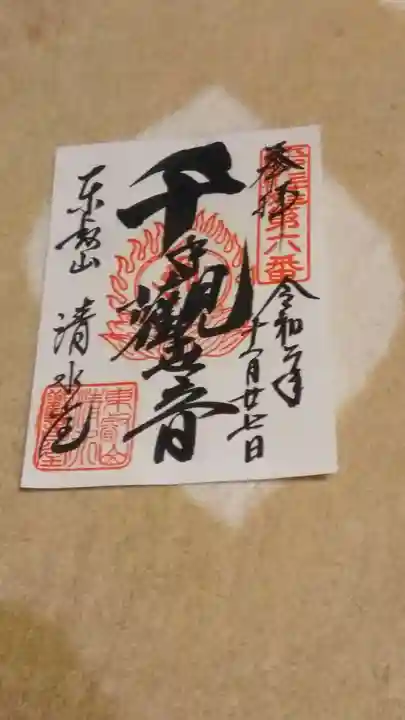 奉拝
第六番
令和二年
十一月廿七日
千手觀音
東叡山
清水堂
東叡山